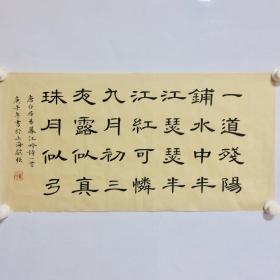 一道殘陽
鋪水中半
江瑟瑟半
江紅可憐
九月初三
夜露似真
珠月似弓
唐白居易暮江吟詩一首
庚子年書於上海